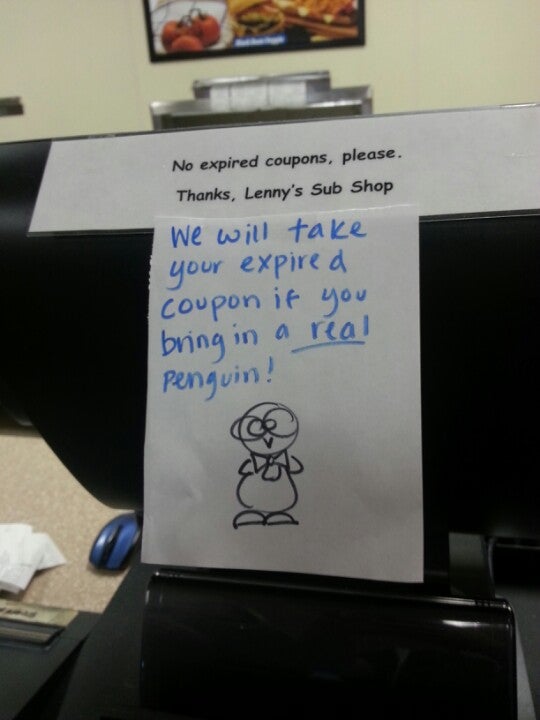 No expired coupons, please.
Thanks, Lenny's Sub Shop
We will take
your expired
coupon if you
bring in a real
Penguin!